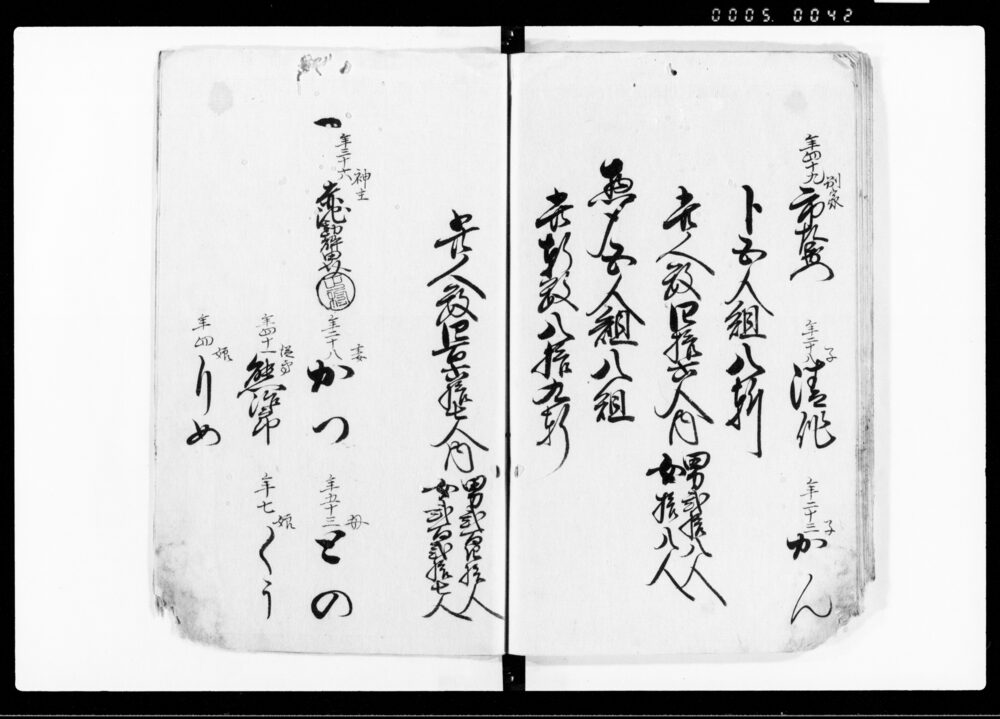 0005. 0042
年四十九
別家
年二十八
子
清作
年二十三
子
かん
〆五人組八軒
此人数四拾六人内
男弐拾八人
女拾八人
惣〆五人組八組
此軒数八拾九軒
此人数四百六拾七人内
男弐百四拾人
女弐百弐拾七人
一
年三十六
神主
年二十八
妻
かつ
年五十三
母
との
年四十一
年七
娘
くう
年四
娘
りめ